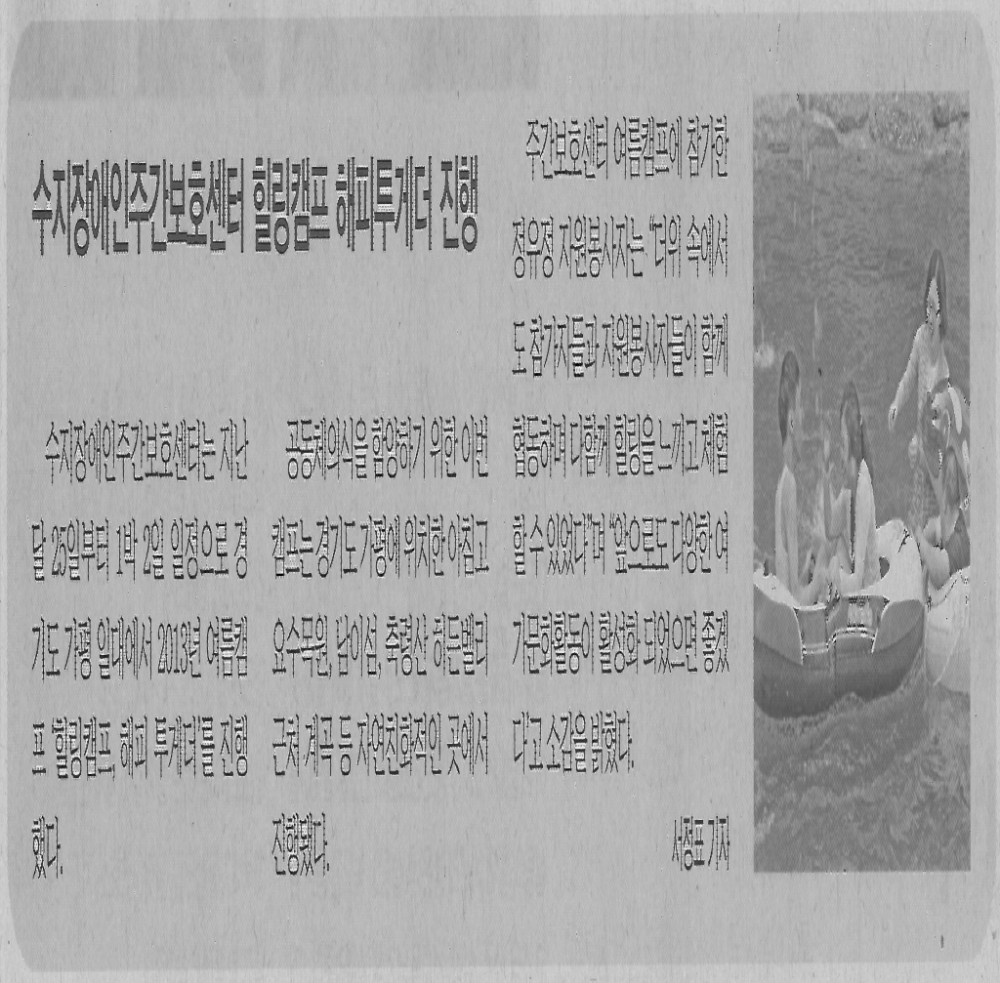 수지장애인주간보호센터 힐링캠프 해피투게더 진행
수지장애인주간보호센터는 지난
달 25일부터 1박 2일 일정으로 경
기도 가평 일대에서 2013년 여름캠
프 ‘힐링캠프, 해피 투게더’를 진행
했다.
공동체의식을 함양하기 위한 이번
캠프는 경기도 가평에 위치한 아침고
요수목원, 남이섬, 축령산 하든밸리
근처 계곡 등 자연친화적인 곳에서
진행됐다.
주간보호센터 여름캠프에 참가한
정유정 자원봉사자는 “더위 속에서
도 참가자들과 자원봉사자들이 함께
협동하며 다함께 힐링을 느끼고 체험
할 수 있었다”며 “앞으로도 다양한 여
가문화활동이 활성화 되었으면 좋겠
다’고 소감을 밝혔다.
서정표 기자